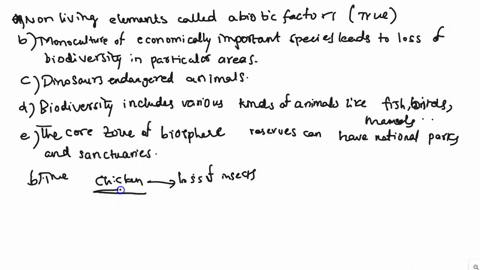 a) Non living elements called abiotic factors (True)
b) Monoculture of economically important species leads to loss of
biodiversity in particular areas.
c) Dinosaurs endangered animals.
d) Biodiversity includes various kinds of animals like fish, birds,
mamals..
e) The core zone of biosphere reserves can have national parks
and sanctuaries.
b) True chicken → loss of insects